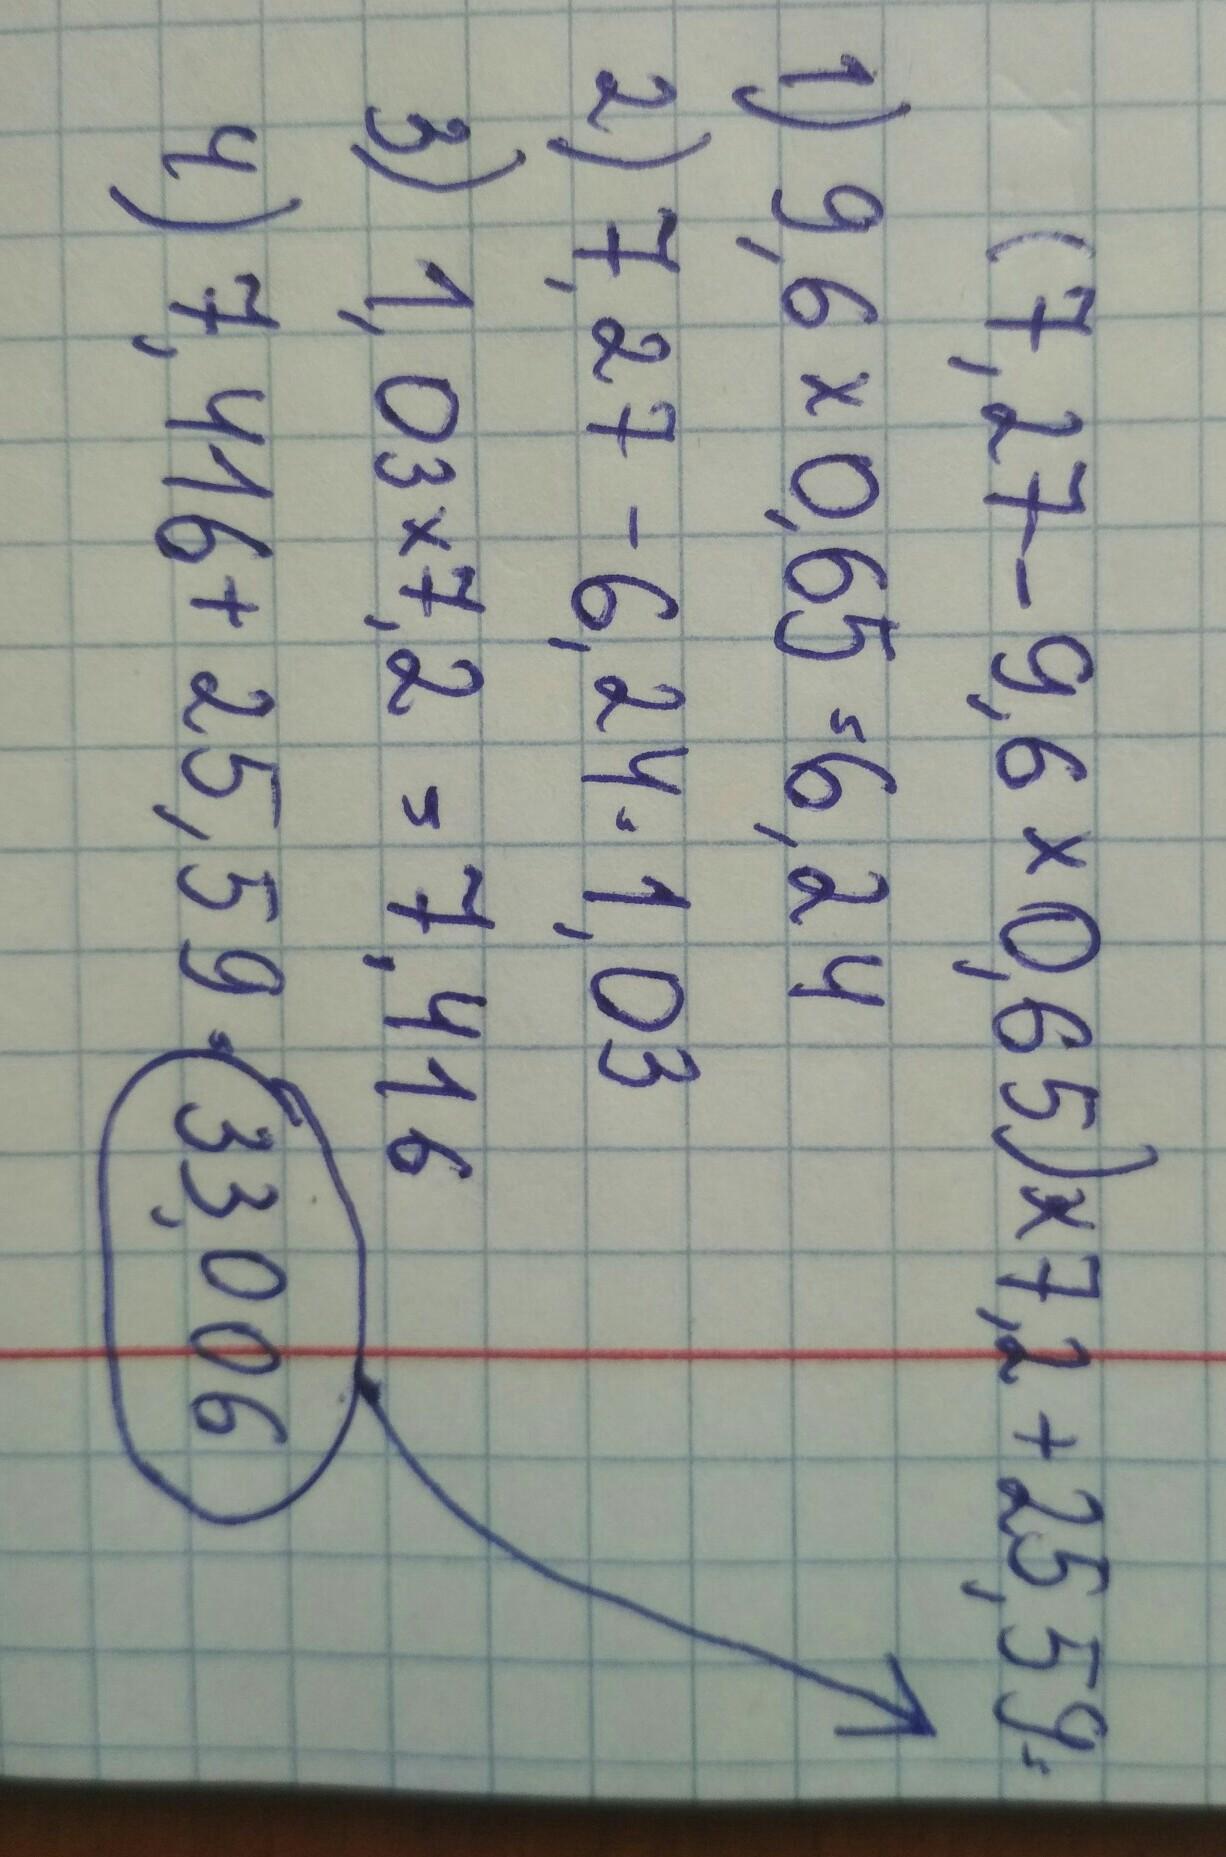 (7,27-9,6×0,65)×7,2+25,59=
1) 9,6×0,65=6,24
2) 7,27-6,24=1,03
3) 1,03×7,2=7,416
4) 7,416+25,59=33,006